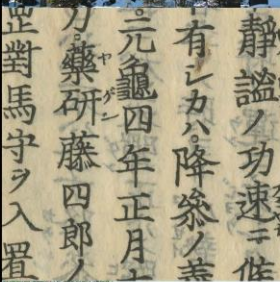 靜謐ノ功速ニ
有シカハ。降參ノ
。元龜四年正月
刀。藥研藤四郎ノ
ヤゲン
對馬守ヲ入置